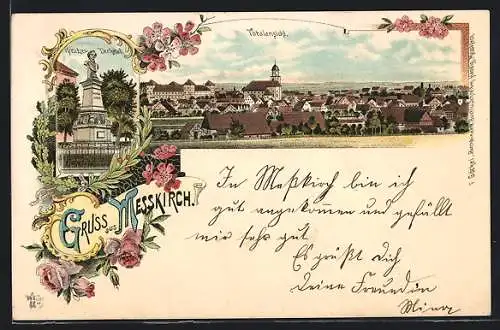 Totalansicht.
GRUSS aus MESSKIRCH.
In Meßkirch bin ich
gut angekommen und gefällt
mir sehr gut.
Es grüßt dich
deine Freundin